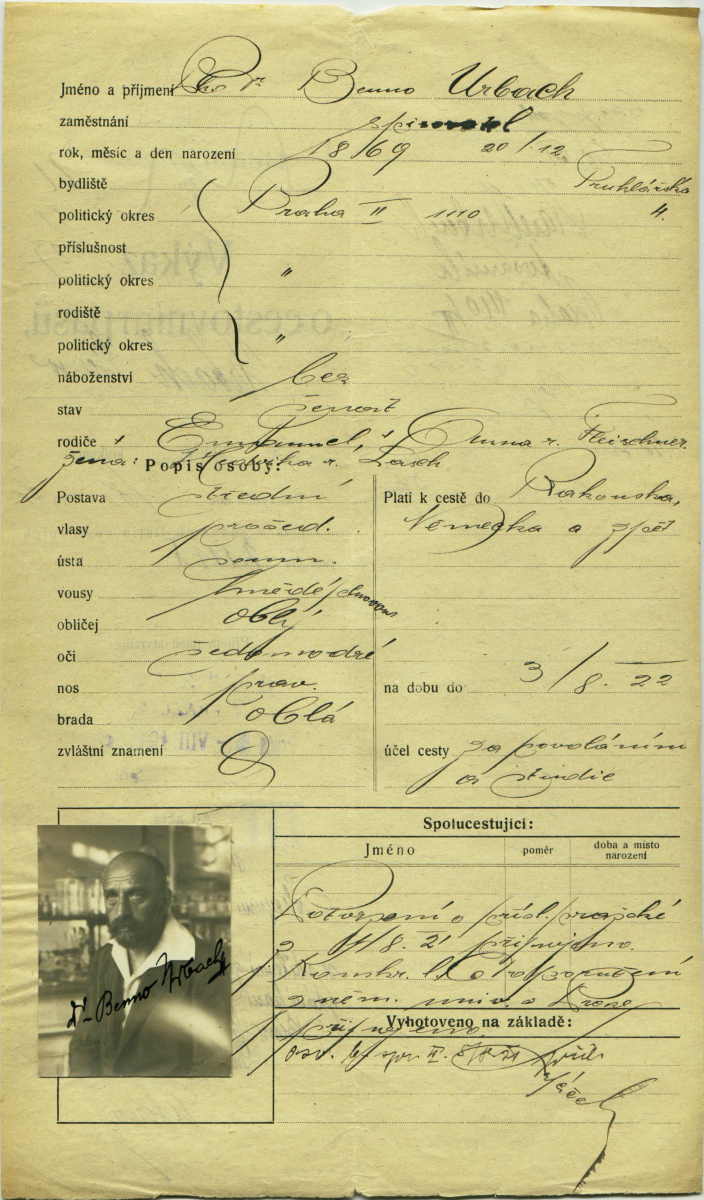 Jméno a příjmení Dr. Benno Urbach
zaměstnání spisovatel
rok, měsíc a den narození 1869 20/12
bydliště Truhlářská
politický okres Praha II 1110 4.
příslušnost
politický okres "
rodiště
politický okres "
náboženství bez
stav ženat
rodiče Emanuel, Anna r. Fleischner
žena: r. Lasch
Popis osoby:
Postava střední
vlasy prošed.
ústa soum.
vousy hnědé
obličej oblý
oči šedomodré
nos prav.
brada oblá
zvláštní znamení
Platí k cestě do Rakouska,
Německa a zpět
na dobu do 3/8. 22
účel cesty za povoláním
a studie
Spolucestující:
Jméno
poměr
doba a místo
narození
Potvrzení o přísl. pražské
z 8. 21 přijmuto.
z něm. univ. v Praze
Vyhotoveno na základě:
Dr. Benno Urbach